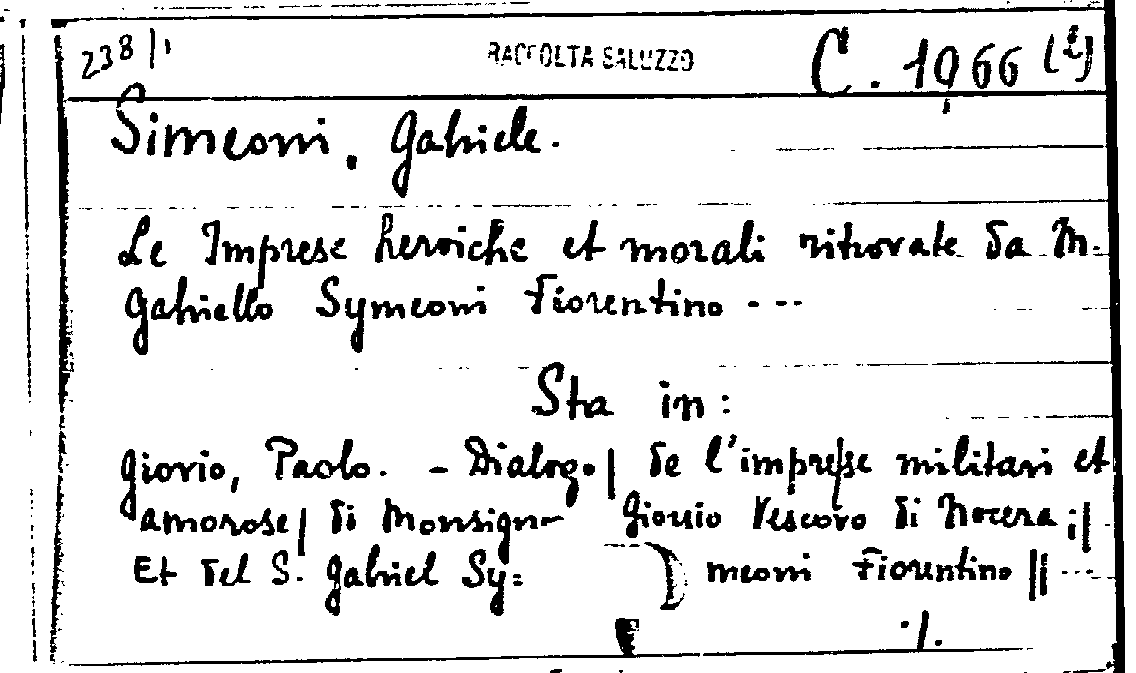 238/1 RACCOLTA SALUZZO C. 1966 (2)
Simeoni, Gabriele.
Le Imprese heroiche et morali ritrovate da M.
Gabriello Symeoni Fiorentino ---
Sta in:
Giovio, Paolo. - Dialogo| de l'imprese militari et
amorose| di Monsign- Giouio Vescovo di Nocera;||
Et del S. Gabriel Sy= meoni Fiorentino || ...
./.